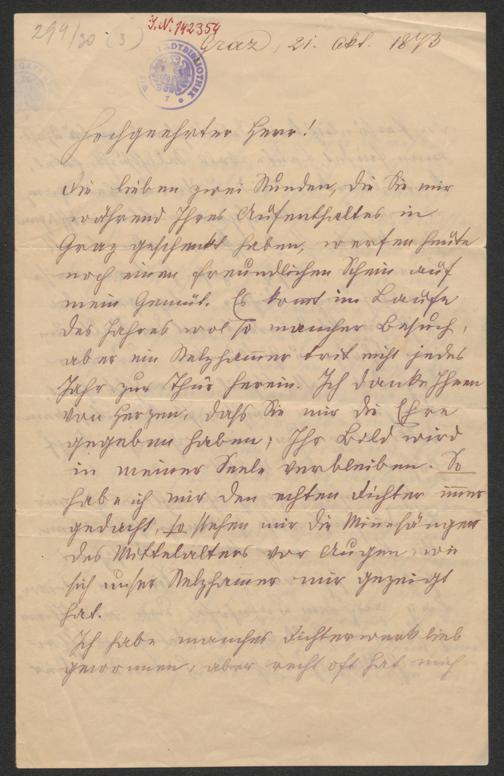 294/30 (3)
I.N. 142354
STADTBIBLIOTHEK
Graz, 21. Okt. 1873
Hochgeehrter Herr!
Die lieben zwei Stunden, die Sie mir
während Ihres Aufenthaltes in
Graz geschenkt haben, werfen heute
noch einen freundlichen Schein auf
mein Gemüt. Es komt im Laufe
des Jahres wol so mancher Besuch,
aber ein Stelzhamer trit nicht jedes
Jahr zur Thür herein. Ich danke Ihnen
von Herzen, dass Sie mir die Ehre
gegeben haben; Ihr Bild wird
in meiner Seele verbleiben. So
habe ich mir den echten Dichter immer
gedacht, so stehen mir die Minesänger
des Mittelalters vor Augen, wie
sich unser Stelzhamer mir gezeigt
hat.
Ich habe manches Dichterwerk lieb
gewonnen, aber recht oft hat mich